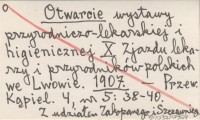 Otwarcie wystawy
przyrodniczo-lekarskiej i
higienicznej X Zjazdu leka-
rzy i przyrodników polskich
we Lwowie. 1907. — Przew.
Kąpiel. 4, nr 5: 38-40.
Z udziałem Zakopanego i Szczawnicy